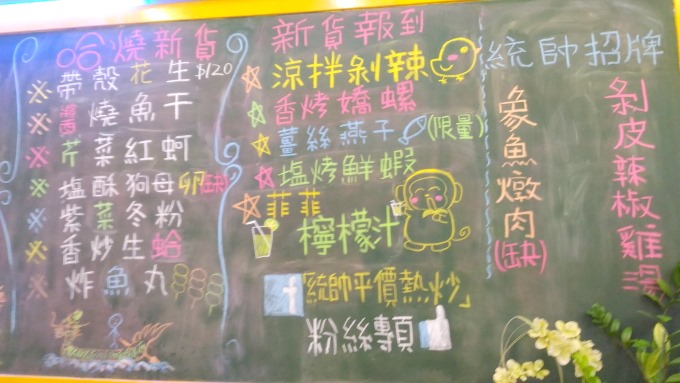 哈燒新貨
帶殼花生$120
燒魚干
芹菜紅蚵
塩酥狗母卵(缺)
紫菜冬粉
香炒生蛤
炸魚丸
新貨報到
涼拌剝辣
香烤嬌螺
薑絲燕子(限量)
塩烤鮮蝦
菲菲
檸檬汁
f「統帥平價熱炒」
粉絲專頁
統帥招牌
象魚燉肉(缺)
剝皮辣椒雞湯